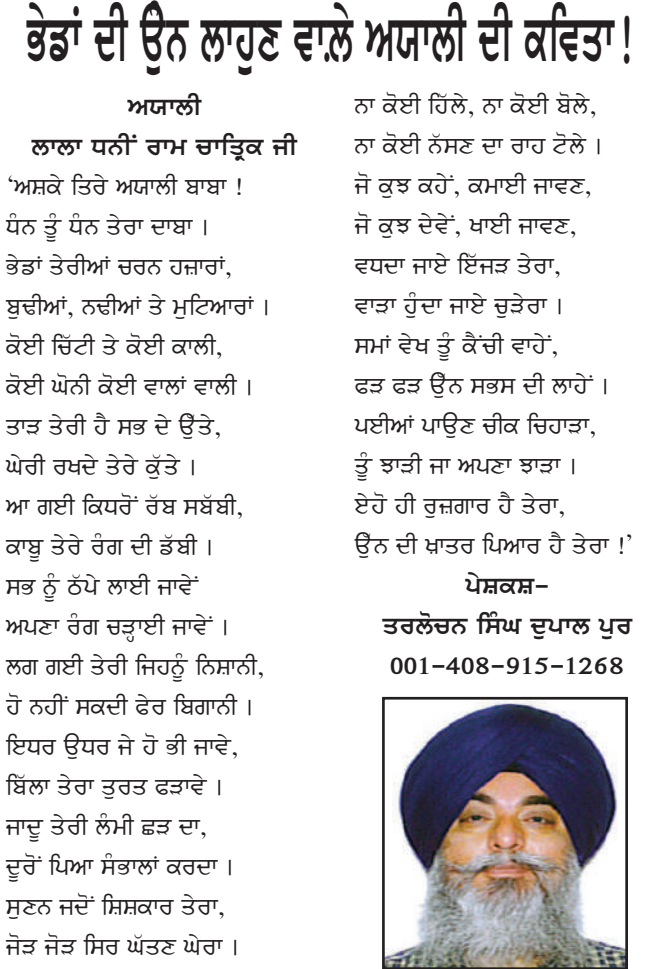 ਭੇਡਾਂ ਦੀ ਉੱਨ ਲਾਹੁਣ ਵਾਲ਼ੇ ਅਯਾਲੀ ਦੀ ਕਵਿਤਾ!
ਅਯਾਲੀ
ਲਾਲਾ ਧਨੀਂ ਰਾਮ ਚਾਤ੍ਰਿਕ ਜੀ
'ਅਸ਼ਕੇ ਤਿਰੇ ਅਯਾਲੀ ਬਾਬਾ !
ਧੰਨ ਤੂੰ ਧੰਨ ਤੇਰਾ ਦਾਬਾ ।
ਭੇਡਾਂ ਤੇਰੀਆਂ ਚਰਨ ਹਜ਼ਾਰਾਂ,
ਬੁਢੀਆਂ, ਨਢੀਆਂ ਤੇ ਮੁਟਿਆਰਾਂ ।
ਕੋਈ ਚਿੱਟੀ ਤੇ ਕੋਈ ਕਾਲੀ,
ਕੋਈ ਘੋਨੀ ਕੋਈ ਵਾਲਾਂ ਵਾਲੀ ।
ਤਾੜ ਤੇਰੀ ਹੈ ਸਭ ਦੇ ਉੱਤੇ,
ਘੇਰੀ ਰਖਦੇ ਤੇਰੇ ਕੁੱਤੇ ।
ਆ ਗਈ ਕਿਧਰੋਂ ਰੱਬ ਸਬੱਬੀ,
ਕਾਬੂ ਤੇਰੇ ਰੰਗ ਦੀ ਡੱਬੀ ।
ਸਭ ਨੂੰ ਠੱਪੇ ਲਾਈ ਜਾਵੇਂ
ਅਪਣਾ ਰੰਗ ਚੜ੍ਹਾਈ ਜਾਵੇਂ ।
ਲਗ ਗਈ ਤੇਰੀ ਜਿਹਨੂੰ ਨਿਸ਼ਾਨੀ,
ਹੋ ਨਹੀਂ ਸਕਦੀ ਫੇਰ ਬਿਗਾਨੀ ।
ਇਧਰ ਉਧਰ ਜੇ ਹੋ ਭੀ ਜਾਵੇ,
ਬਿੱਲਾ ਤੇਰਾ ਤੁਰਤ ਫੜਾਵੇ ।
ਜਾਦੂ ਤੇਰੀ ਲੰਮੀ ਛੜ ਦਾ,
ਦੂਰੋਂ ਪਿਆ ਸੰਭਾਲਾਂ ਕਰਦਾ ।
ਸੁਣਨ ਜਦੋਂ ਸ਼ਿਸ਼ਕਾਰ ਤੇਰਾ,
ਜੋੜ ਜੋੜ ਸਿਰ ਘੱਤਣ ਘੇਰਾ ।
ਨਾ ਕੋਈ ਹਿੱਲੇ, ਨਾ ਕੋਈ ਬੋਲੇ,
ਨਾ ਕੋਈ ਨੱਸਣ ਦਾ ਰਾਹ ਟੋਲੇ ।
ਜੋ ਕੁਝ ਕਹੇਂ, ਕਮਾਈ ਜਾਵਣ,
ਜੋ ਕੁਝ ਦੇਵੇਂ, ਖਾਈ ਜਾਵਣ,
ਵਧਦਾ ਜਾਏ ਇੱਜੜ ਤੇਰਾ,
ਵਾੜਾ ਹੁੰਦਾ ਜਾਏ ਚੁੜੇਰਾ ।
ਸਮਾਂ ਵੇਖ ਤੂੰ ਕੈਂਚੀ ਵਾਹੇਂ,
ਫੜ ਫੜ ਉੱਨ ਸਭਸ ਦੀ ਲਾਹੇਂ ।
ਪਈਆਂ ਪਾਉਣ ਚੀਕ ਚਿਹਾੜਾ,
ਤੂੰ ਝਾੜੀ ਜਾ ਅਪਣਾ ਝਾੜਾ ।
ਏਹੋ ਹੀ ਰੁਜ਼ਗਾਰ ਹੈ ਤੇਰਾ,
ਉੱਨ ਦੀ ਖ਼ਾਤਰ ਪਿਆਰ ਹੈ ਤੇਰਾ !'
ਪੇਸ਼ਕਸ਼-
ਤਰਲੋਚਨ ਸਿੰਘ ਦੁਪਾਲ ਪੁਰ
001-408-915-1268